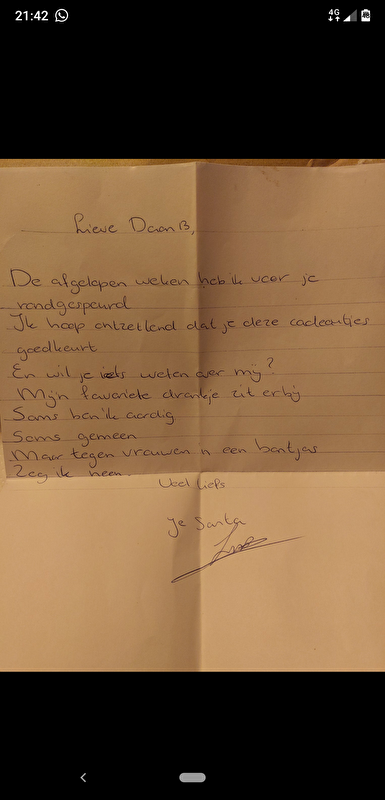 21:42
4G
Lieve Daan B,
De afgelopen weken heb ik voor je
rondgespeurd
Ik hoop ontzettend dat je deze cadeautjes
goedkeurt
En wil je iets weten over mij?
Mijn favoriete drankje zit erbij
Soms ben ik aardig
Soms gemeen
Maar tegen vrouwen in een bontjas
Zeg ik neen.
Veel liefs
je Santa